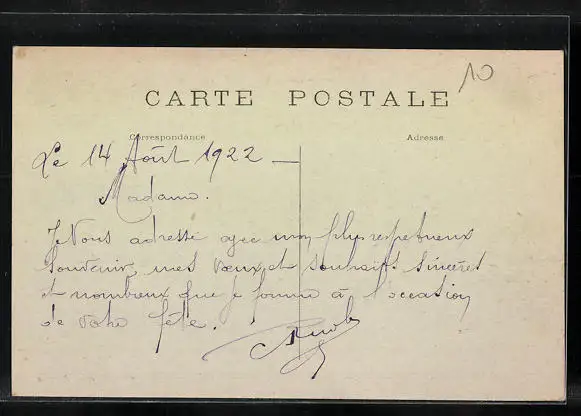 10
CARTE POSTALE
Correspondance
Adresse
Le 14 Août 1922 —
Madame.
Je Vous adresse avec mon plus respetueux
Souvenir, mes vœux et souhaits sincères
et nombreux que je forme à l'occation
de votre fête.